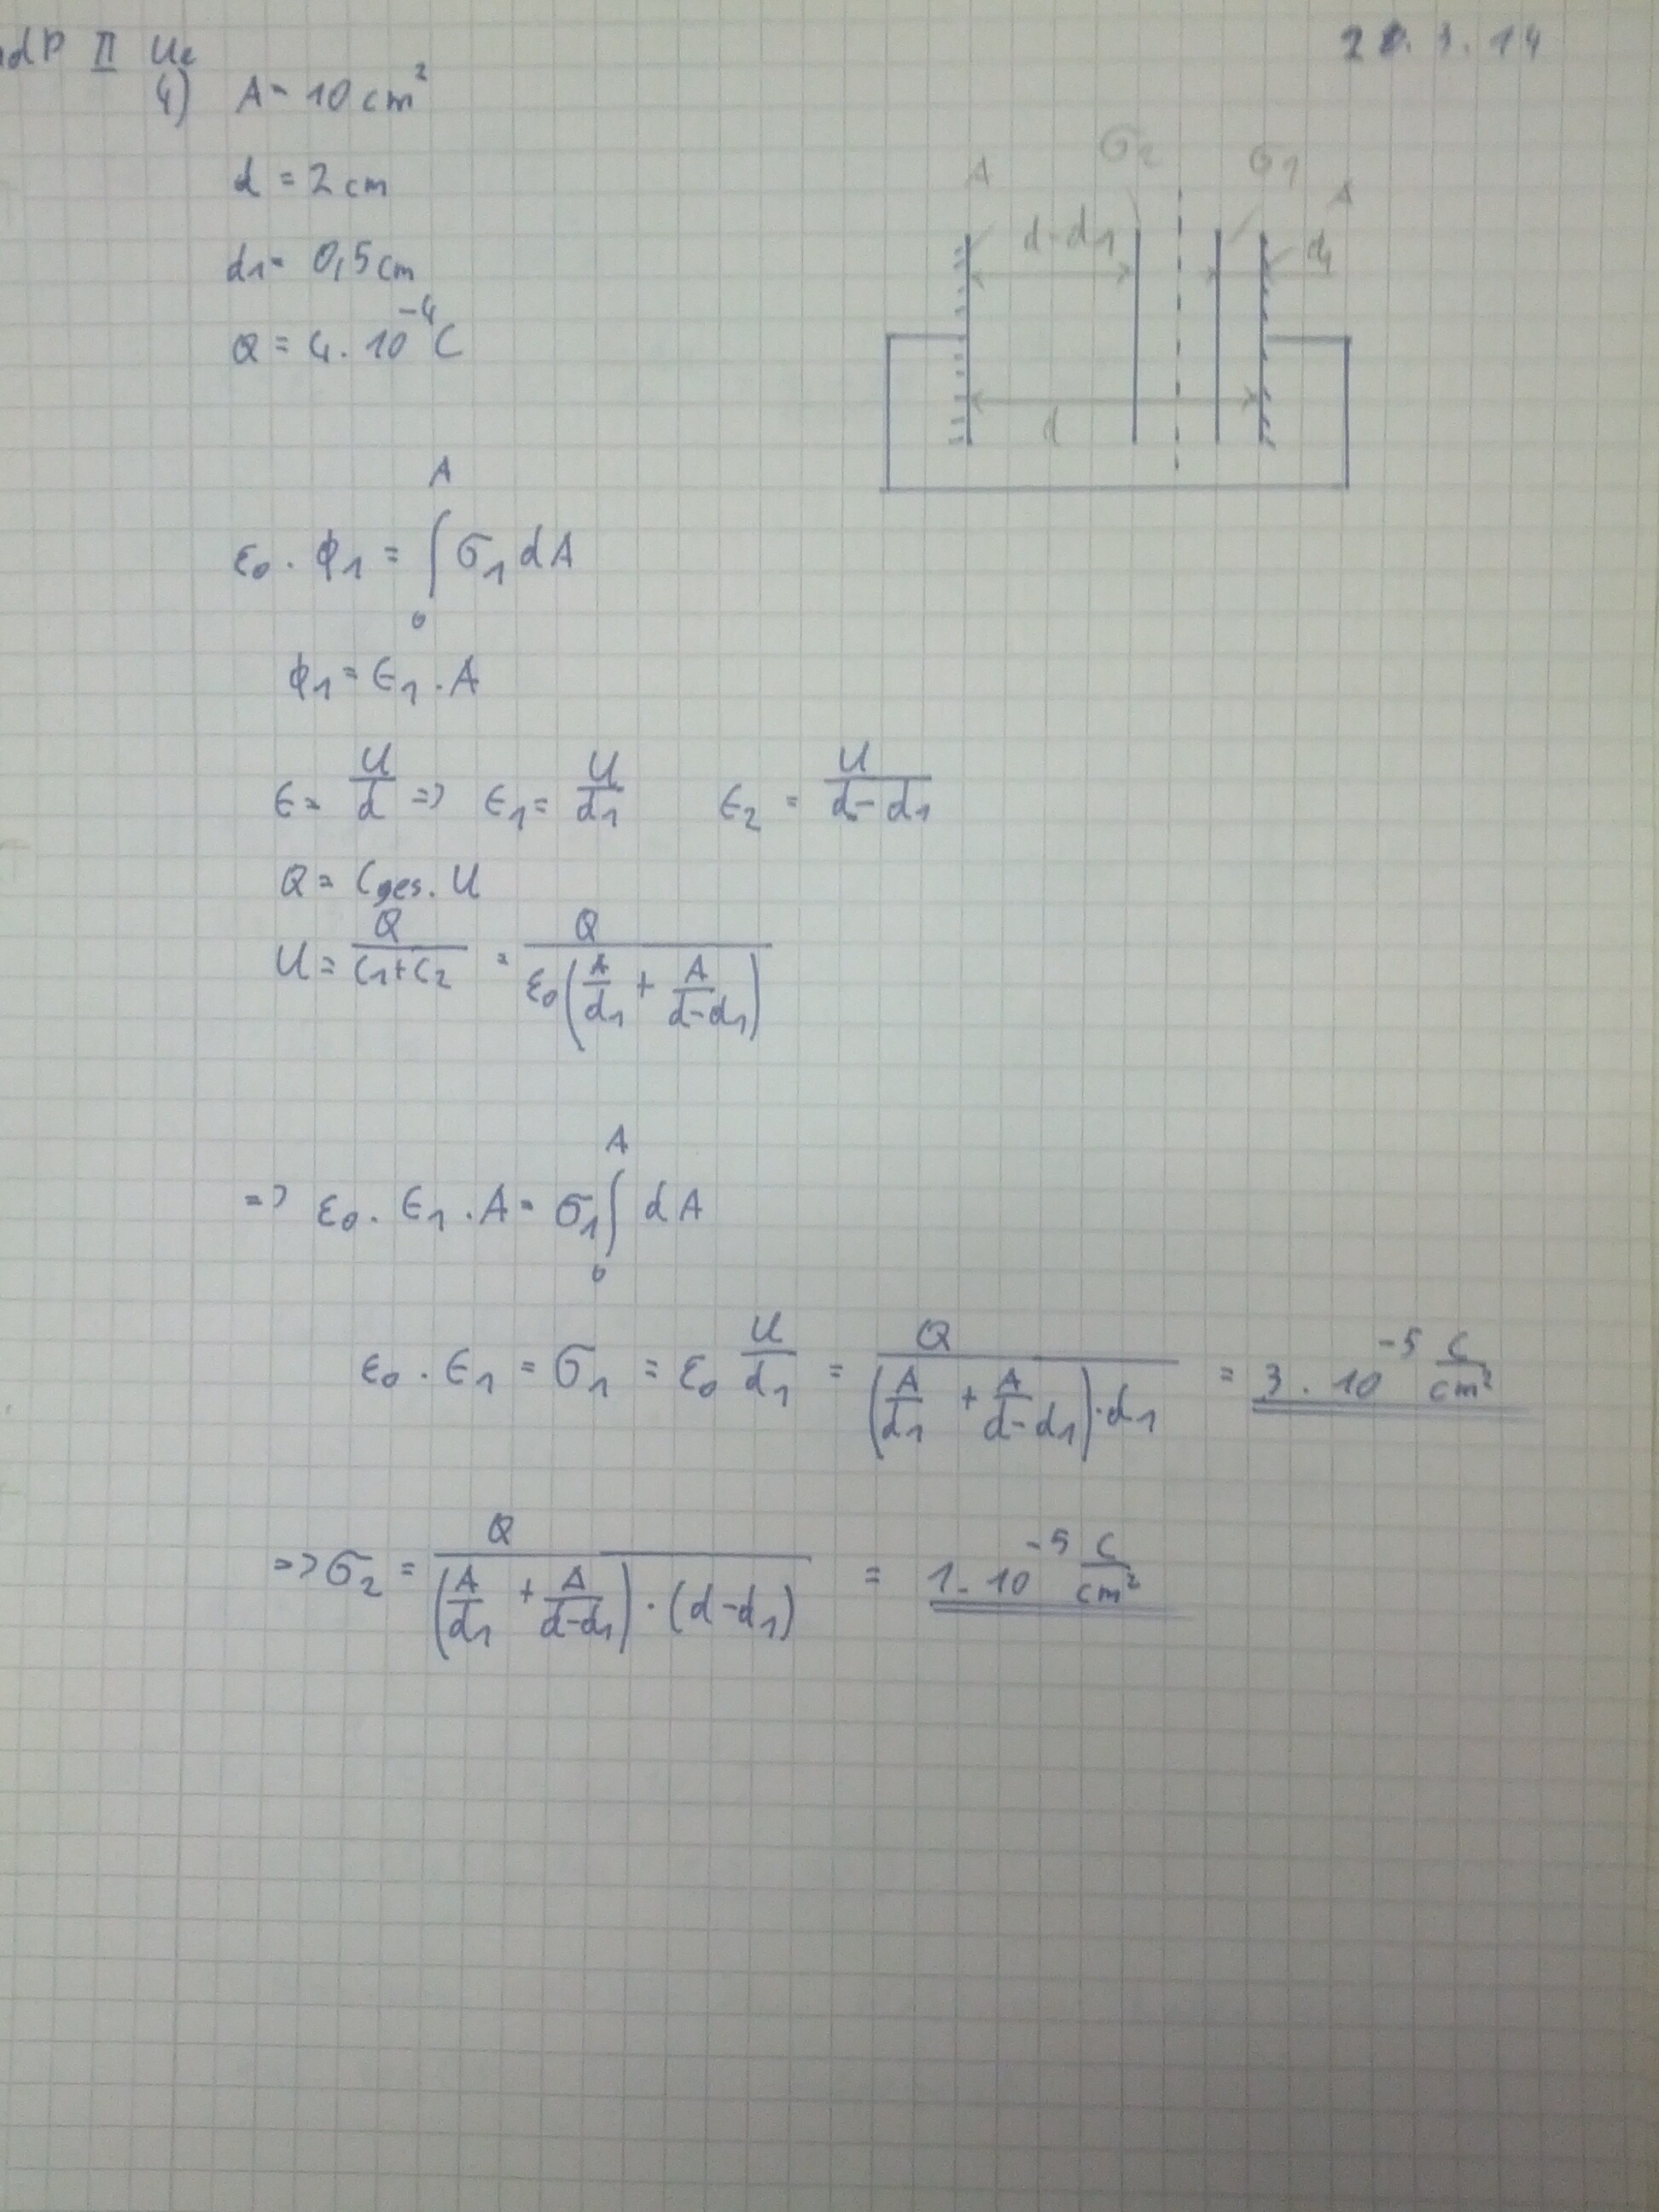 dP II Ue
4) A = 10 cm²
d = 2 cm
d₁ = 0,5 cm
Q = 4 · 10⁻⁴ C
. 3 . 14
A σ₂ σ₁ A
d-d₁ d₁
d
ε₀ · ϕ₁ = ∫₀ᴬ σ₁ dA
ϕ₁ = E₁ · A
E = U/d => E₁ = U/d₁ E₂ = U/(d-d₁)
Q = Cges. U
U = Q/(C₁+C₂) = Q/(ε₀(A/d₁ + A/(d-d₁)))
=> ε₀ · E₁ · A = σ₁ ∫₀ᴬ dA
ε₀ · E₁ = σ₁ = ε₀ U/d₁ = Q/((A/d₁ + A/(d-d₁)) · d₁) = 3 · 10⁻⁵ C/cm²
=> σ₂ = Q/((A/d₁ + A/(d-d₁)) · (d-d₁)) = 1 · 10⁻⁵ C/cm²